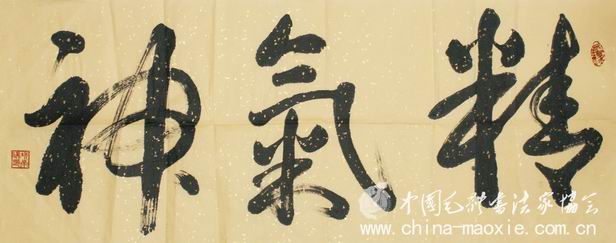 精氣神
中国毛体书法家协会
www.china-maoxie.com